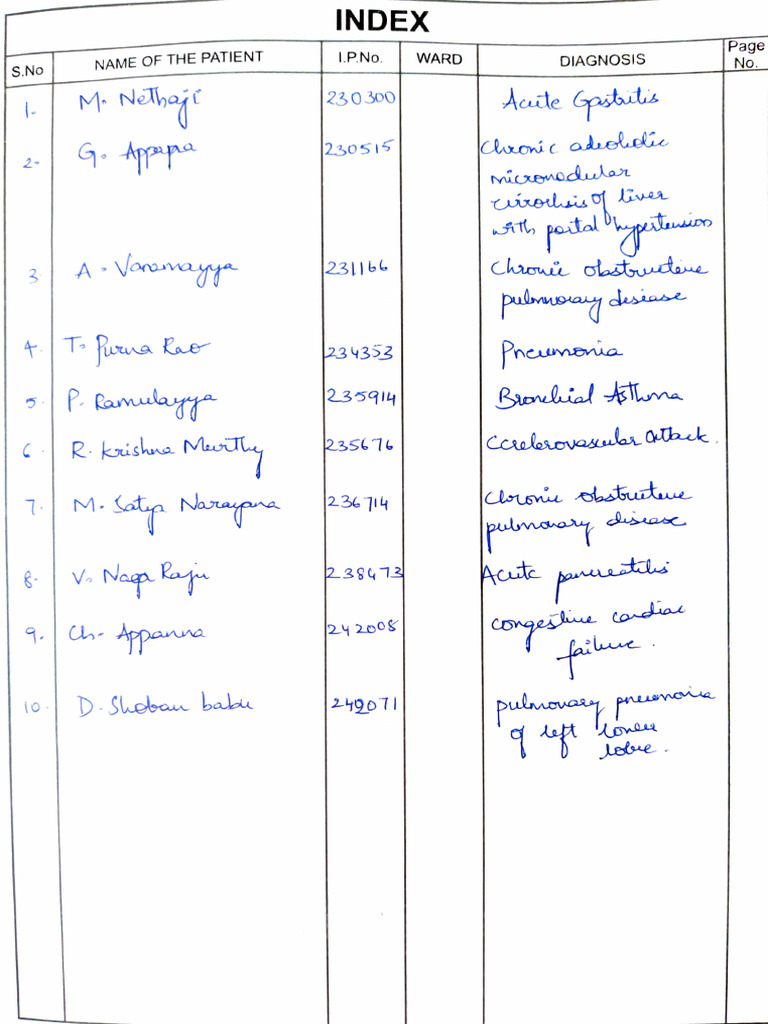 INDEX
S.No NAME OF THE PATIENT I.P.No. WARD DIAGNOSIS Page No.
1. M. Nethaji 230300 Acute Gastritis
2. G. Appapra 230515 Chronic alcoholic
micronodular
cirrohsis of liver
with portal hypertension
3 A. Varamayya 231166 Chronic obstructive
pulmonary disease
4. T. Purna Rao 234353 Pneumonia
5. P. Ramulayya 235914 Bronchial Asthma
6. R. Krishna Murthy 235676 Cerebrovascular attack.
7. M. Satya Narayana 236714 Chronic obstructive
pulmonary disease
8. V. Naga Raju 238473 Acute pancreatitis
9. Ch. Appanna 242008 congestive cardiac
failure.
10. D. Shoban babu 242071 pulmonary pneumonia
of left lower
lobe.